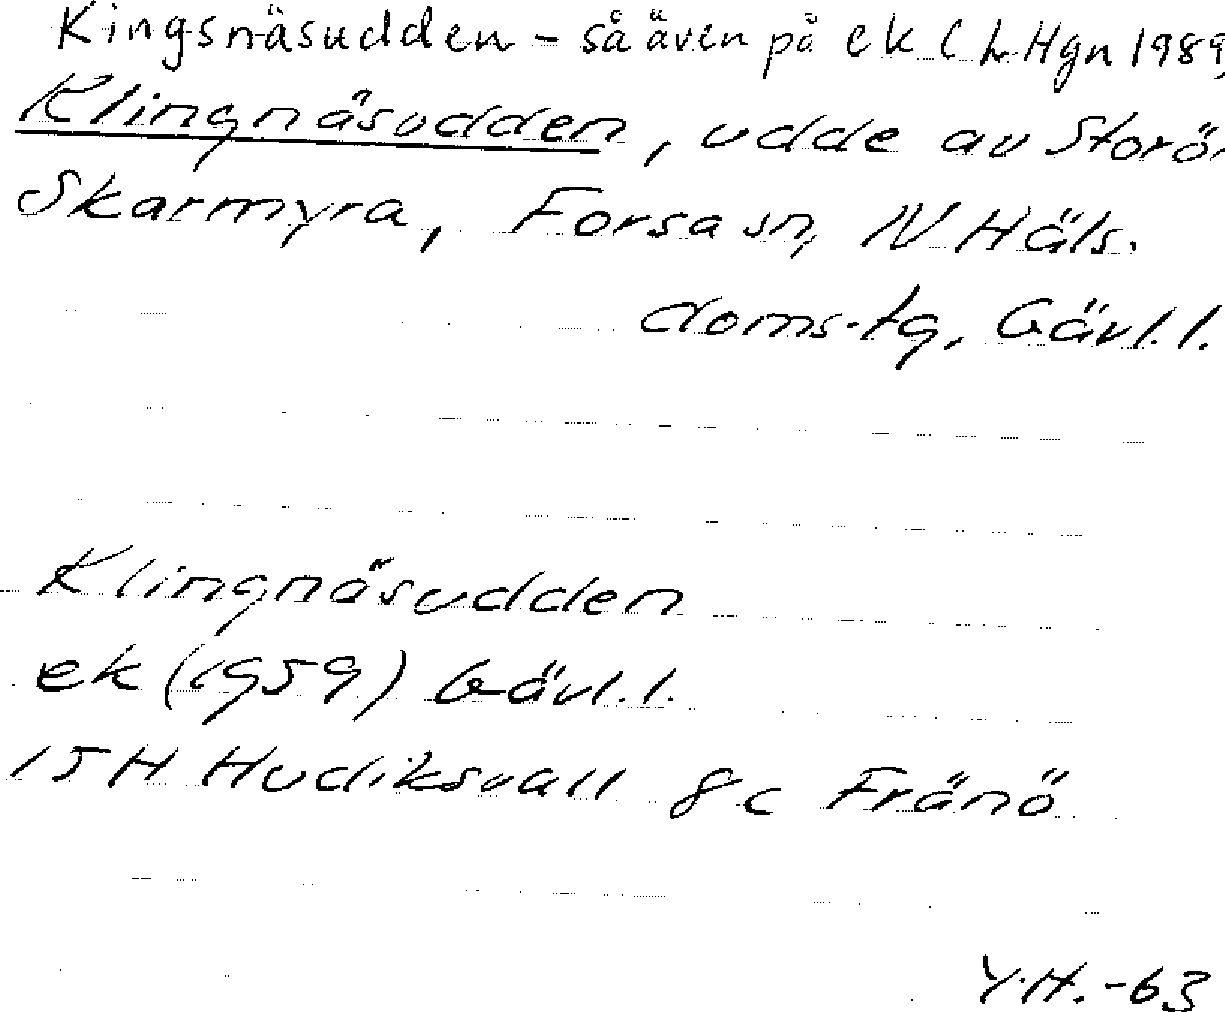 Kingsnäsudden - så även på ek (L Hgn 1989,
Klingnäsudden, udde av Storön
Skarmyra, Forsa sn, N Häls.
doms.tg, Gävl. l.
Klingnäsudden
ek (1959) Gävl. l.
15H Hudiksvall 8c Fränö
Y.H. -63